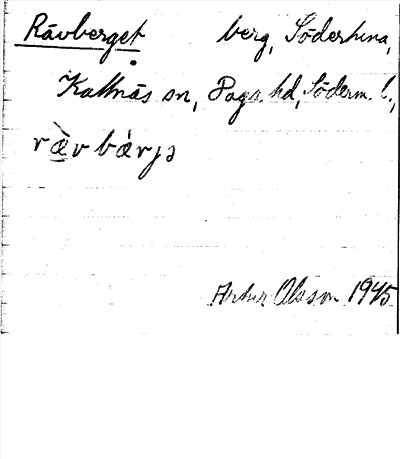 Rävberget berg, Södertuna,
Kattnäs sn, Daga hd, Söderm. l.,
ræ̀v bárjə
Artur Olsson 1945